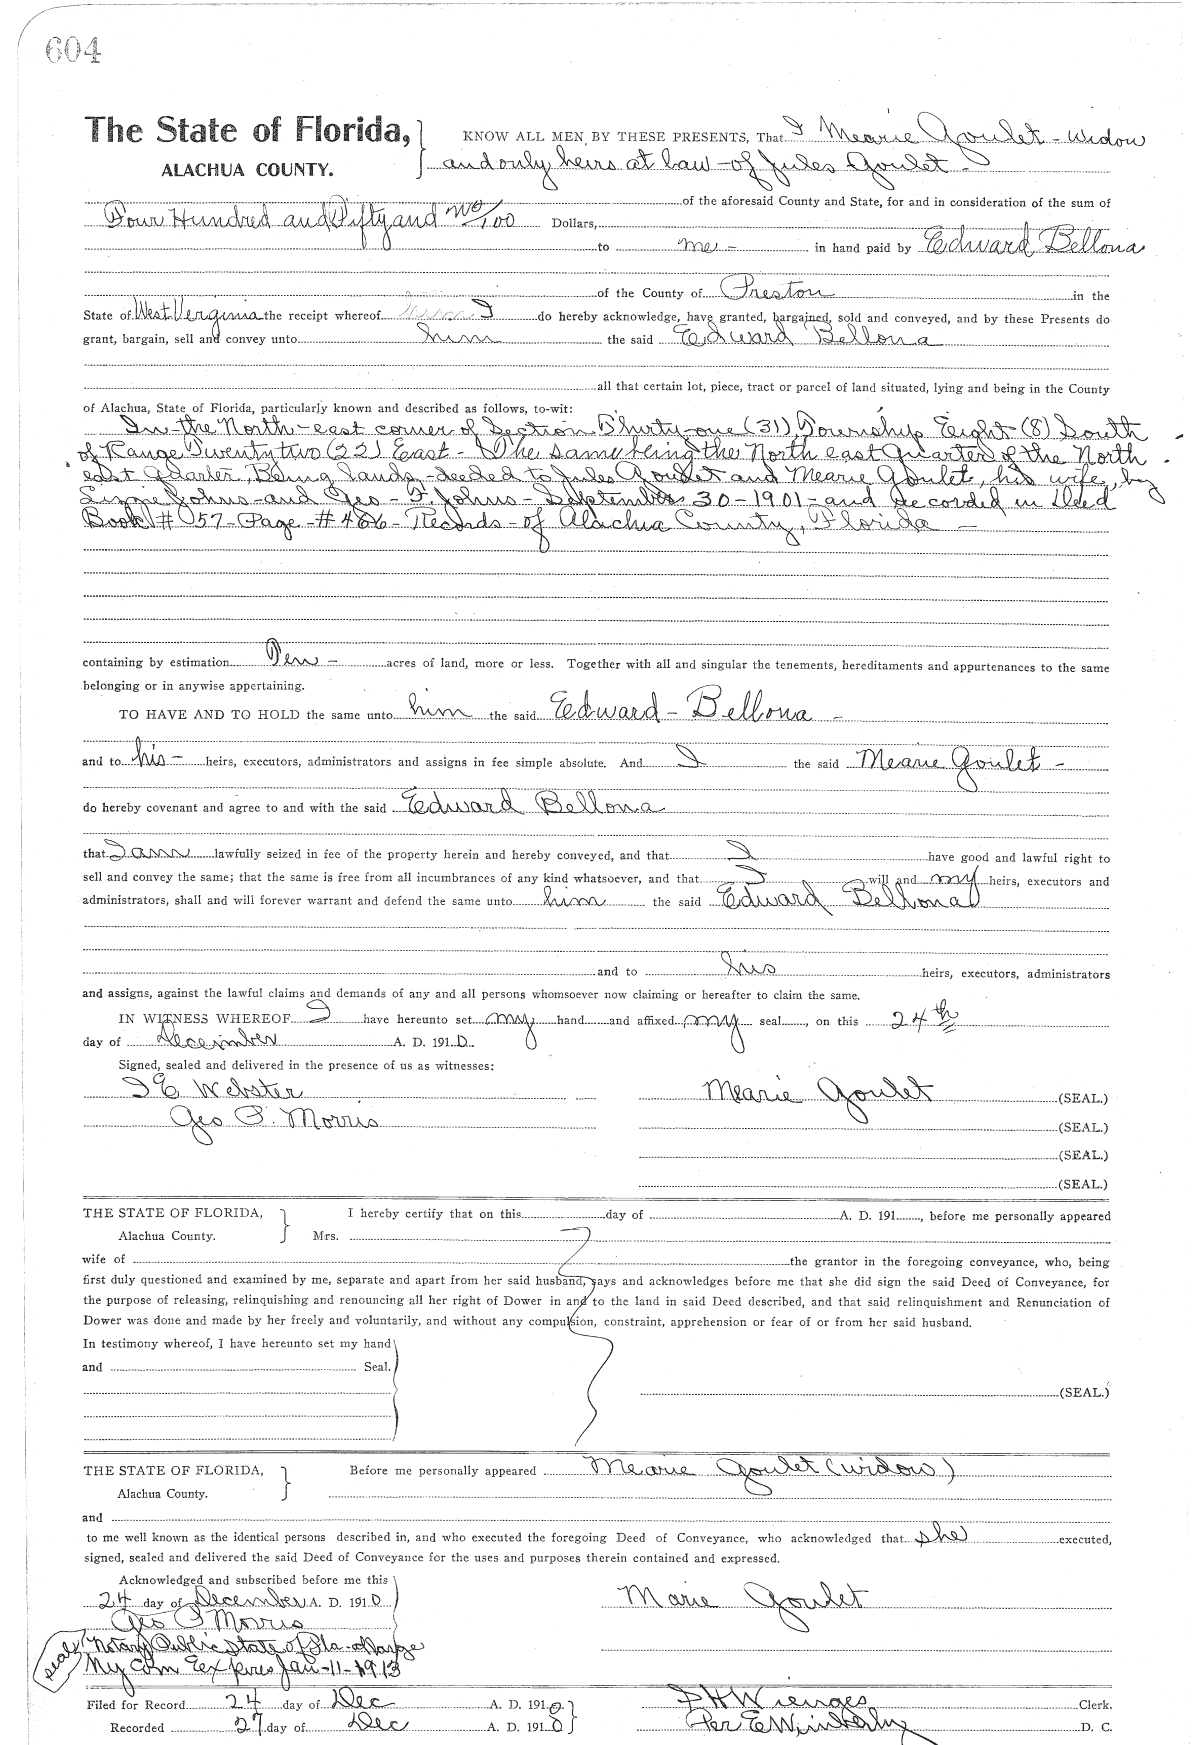 604
The State of Florida,
ALACHUA COUNTY.
KNOW ALL MEN BY THESE PRESENTS, That I Mearie Goulet - Widow
and only heirs at law - of Jules Goulet -
of the aforesaid County and State, for and in consideration of the sum of
Four Hundred and Fifty and no/100 Dollars,
to me - in hand paid by Edward Bellona
of the County of Preston in the
State of West Verginia the receipt whereof I do hereby acknowledge, have granted, bargained, sold and conveyed, and by these Presents do
grant, bargain, sell and convey unto him the said Edward Bellona
all that certain lot, piece, tract or parcel of land situated, lying and being in the County
of Alachua, State of Florida, particularly known and described as follows, to-wit:
In the North-east corner of Section Thirty-one (31) Township Eight (8) South
of Range Twenty two (22) East - The same being the North east Quarter of the North
east Quarter, Being lands deeded to Jules Goulet and Mearie Goulet, his wife, by
Lizzie Johns - and Geo - F. Johns - September 30 - 1901 - and recorded in Deed
Book # 57 - Page - # 466 - Records - of Alachua County, Florida -
containing by estimation Ten - acres of land, more or less. Together with all and singular the tenements, hereditaments and appurtenances to the same
belonging or in anywise appertaining.
TO HAVE AND TO HOLD the same unto him the said Edward - Bellona -
and to his - heirs, executors, administrators and assigns in fee simple absolute. And I the said Mearie Goulet -
do hereby covenant and agree to and with the said Edward Bellona
that I am lawfully seized in fee of the property herein and hereby conveyed, and that I have good and lawful right to
sell and convey the same; that the same is free from all incumbrances of any kind whatsoever, and that I will and my heirs, executors and
administrators, shall and will forever warrant and defend the same unto him the said Edward Bellona
and to his heirs, executors, administrators
and assigns, against the lawful claims and demands of any and all persons whomsoever now claiming or hereafter to claim the same.
IN WITNESS WHEREOF I have hereunto set my hand and affixed my seal, on this 24th
day of December A. D. 1910.
Signed, sealed and delivered in the presence of us as witnesses:
I E Webster Mearie Goulet (SEAL.)
Geo P. Morris (SEAL.)
(SEAL.)
(SEAL.)
THE STATE OF FLORIDA,
Alachua County.
I hereby certify that on this day of A. D. 191, before me personally appeared
Mrs.
wife of the grantor in the foregoing conveyance, who, being
first duly questioned and examined by me, separate and apart from her said husband, says and acknowledges before me that she did sign the said Deed of Conveyance, for
the purpose of releasing, relinquishing and renouncing all her right of Dower in and to the land in said Deed described, and that said relinquishment and Renunciation of
Dower was done and made by her freely and voluntarily, and without any compulsion, constraint, apprehension or fear of or from her said husband.
In testimony whereof, I have hereunto set my hand
and Seal.
(SEAL.)
THE STATE OF FLORIDA,
Alachua County.
Before me personally appeared Mearie Goulet (widow)
and
to me well known as the identical persons described in, and who executed the foregoing Deed of Conveyance, who acknowledged that she executed,
signed, sealed and delivered the said Deed of Conveyance for the uses and purposes therein contained and expressed.
Acknowledged and subscribed before me this
24 day of December A. D. 1910 Marie Goulet
Geo P Morris
seal Notary Public State of Fla - at large
My Com Expires Jan - 11 - 1913
Filed for Record 24 day of Dec A. D. 1910 Clerk.
Recorded 27 day of Dec A. D. 1910 Per E Wimberly D. C.